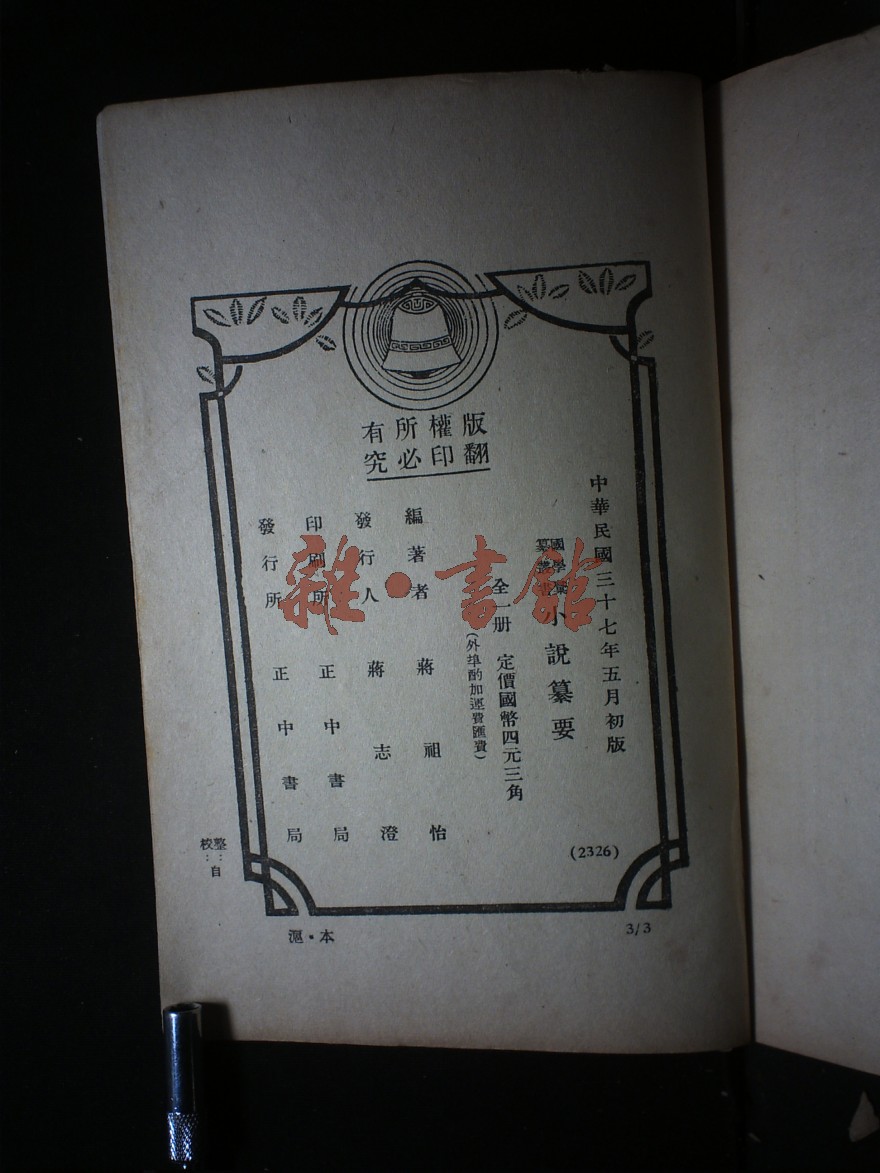 版權所有
翻印必究
中華民國三十七年五月初版
國學彙
纂叢書
小說纂要
全一册 定價國幣四元三角
(外埠酌加運費匯費)
編著者 蔣祖怡
發行人 蔣志澄
印刷所 正中書局
發行所 正中書局
(2326)
整：自
校：
滬・本
3/3
雜・書館